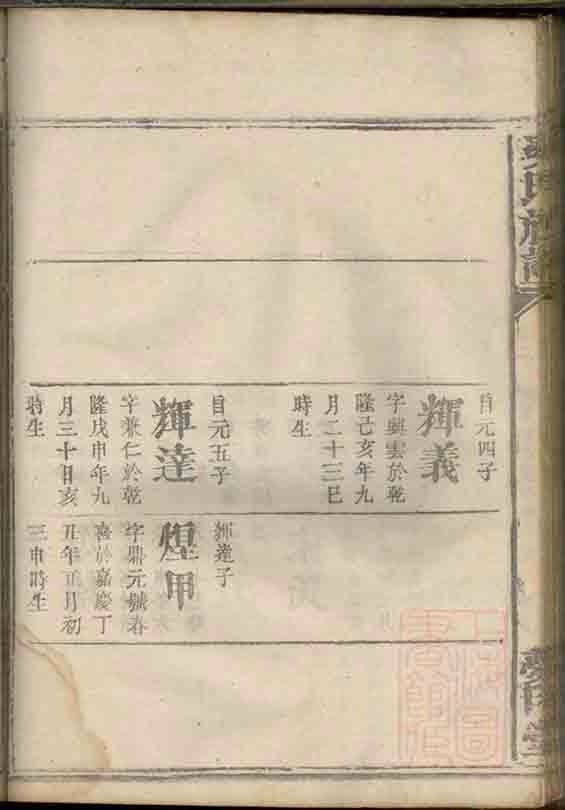 氏族譜
自元四子
輝義
字興雲於乾
隆己亥年九
月二十三巳
時生
自元五子
輝達
字兼仁於乾
隆戊申年九
月三十日亥
時生
輝達子
煋甲
字鼎元號春
喜於嘉慶丁
丑年正月初
三申時生
上海圖
書館藏